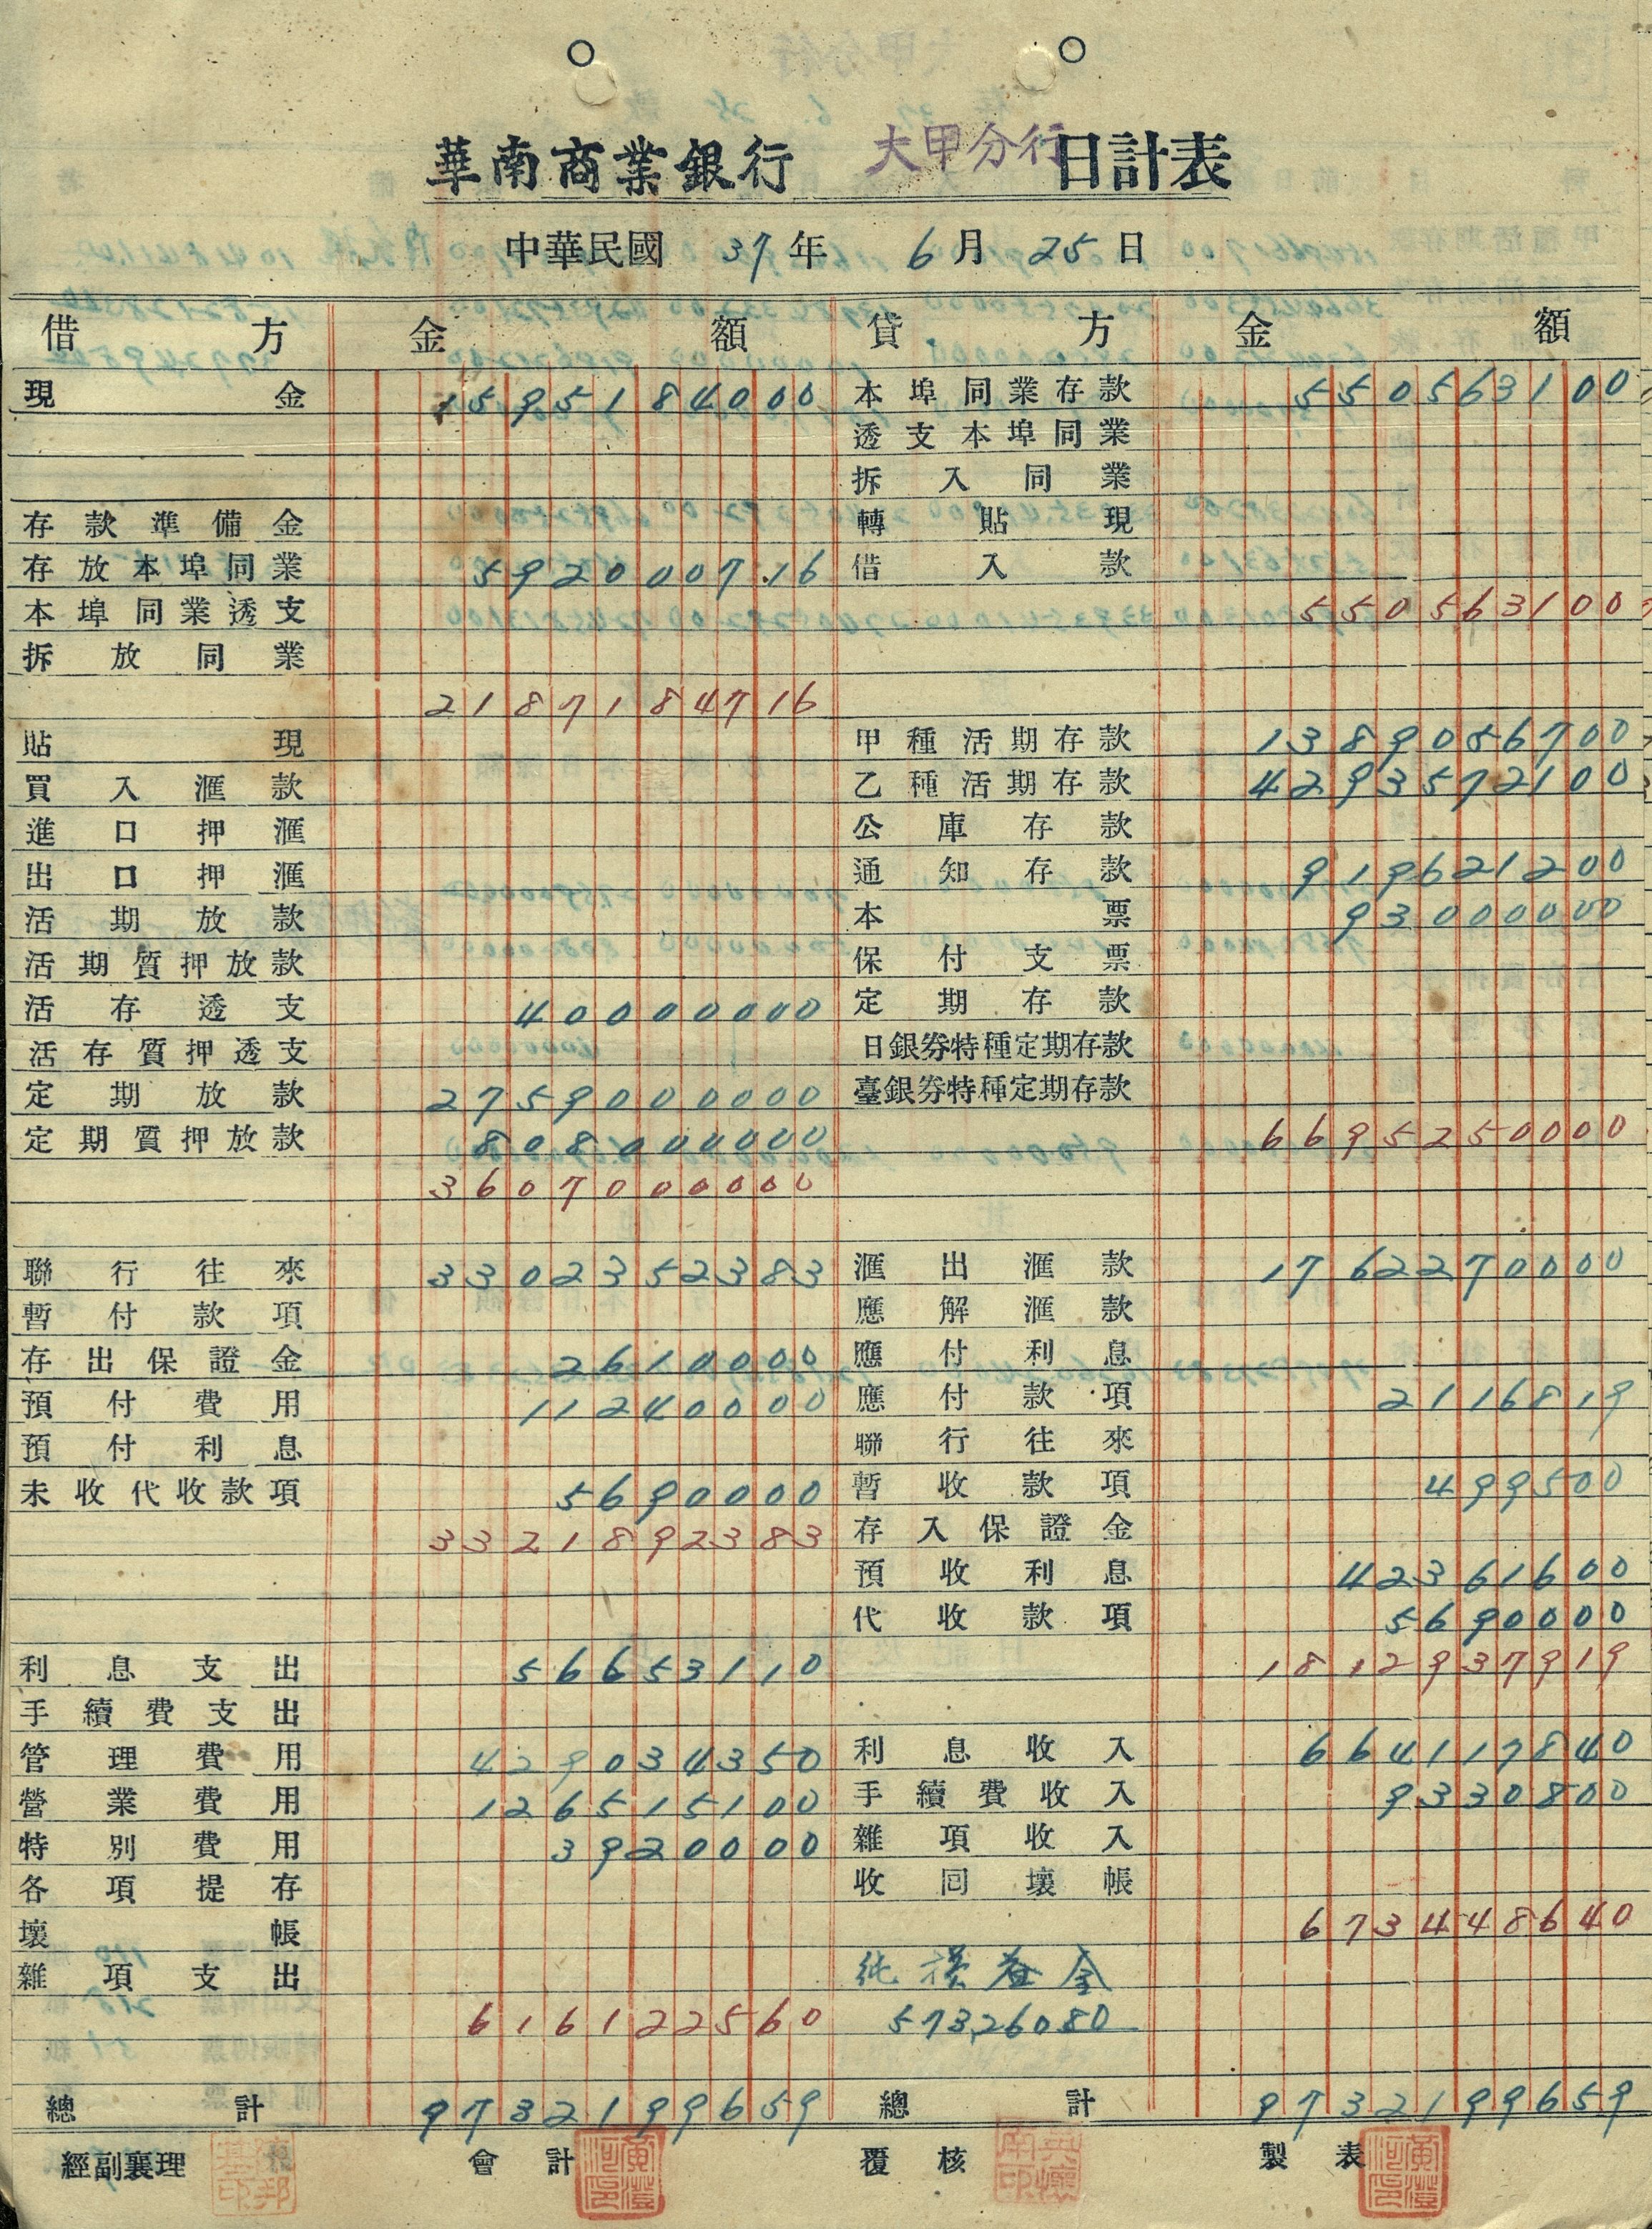 華南商業銀行 大甲分行 日計表
中華民國 37 年 6 月 25 日
借方 金額 貸方 金額
現金 1595184000 本埠同業存款 550563100
透支本埠同業
拆入同業
存款準備金 轉貼現
存放本埠同業 5920007.16 借入款
本埠同業透支 550563100
拆放同業
2187184716
貼現 甲種活期存款 1389056700
買入滙款 乙種活期存款 4293572100
進口押滙 公庫存款
出口押滙 通知存款 919621200
活期放款 本票 93000000
活期質押放款 保付支票
活存透支 40000000 定期存款
活存質押透支 日銀券特種定期存款
定期放款 2759000000 臺銀券特種定期存款
定期質押放款 808000000 6695250000
3607000000
聯行往來 3302352383 滙出滙款 1762270000
暫付款項 應解滙款
存出保證金 2610000 應付利息
預付費用 11240000 應付款項 2116819
預付利息 聯行往來
未收代收款項 5690000 暫收款項 499500
3321892383 存入保證金
預收利息 42361600
代收款項 5690000
利息支出 56653110 1812937919
手續費支出
管理費用 429034350 利息收入 664117840
營業費用 126515100 手續費收入 9330800
特別費用 3920000 雜項收入
各項提存 收回壞帳
壞帳 673448640
雜項支出 純損益金
616122560 573,26080
總計 9732199659 總計 9732199659
經副襄理 會計 覆核 製表